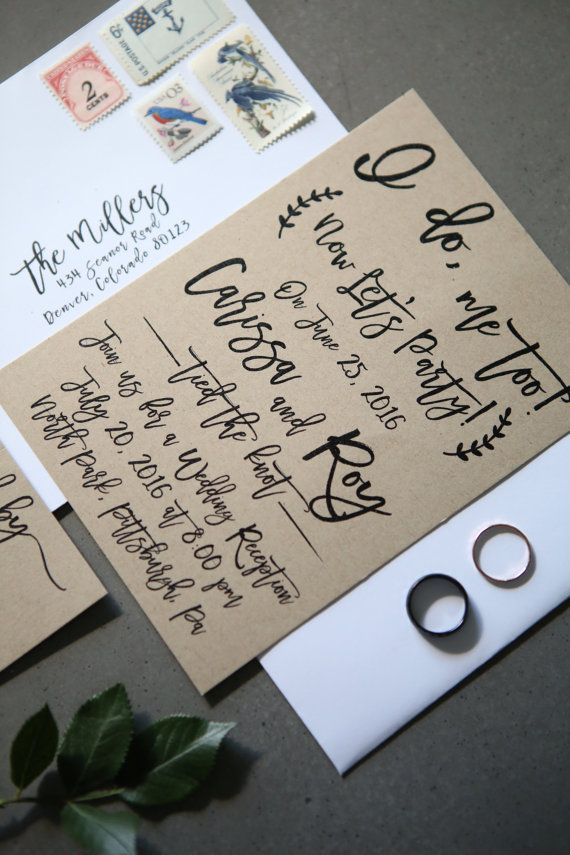 2
CENTS
6¢
U.S. POSTAGE
the Millers
434 Seanor Road
Denver, Colorado 80123
I do, me too!
Now Let's Party!
On June 25, 2016
Carissa and Roy
tied the knot
Join us for a Wedding Reception
July 20, 2016 at 8:00 pm
North Park, Pittsburgh, Pa
by